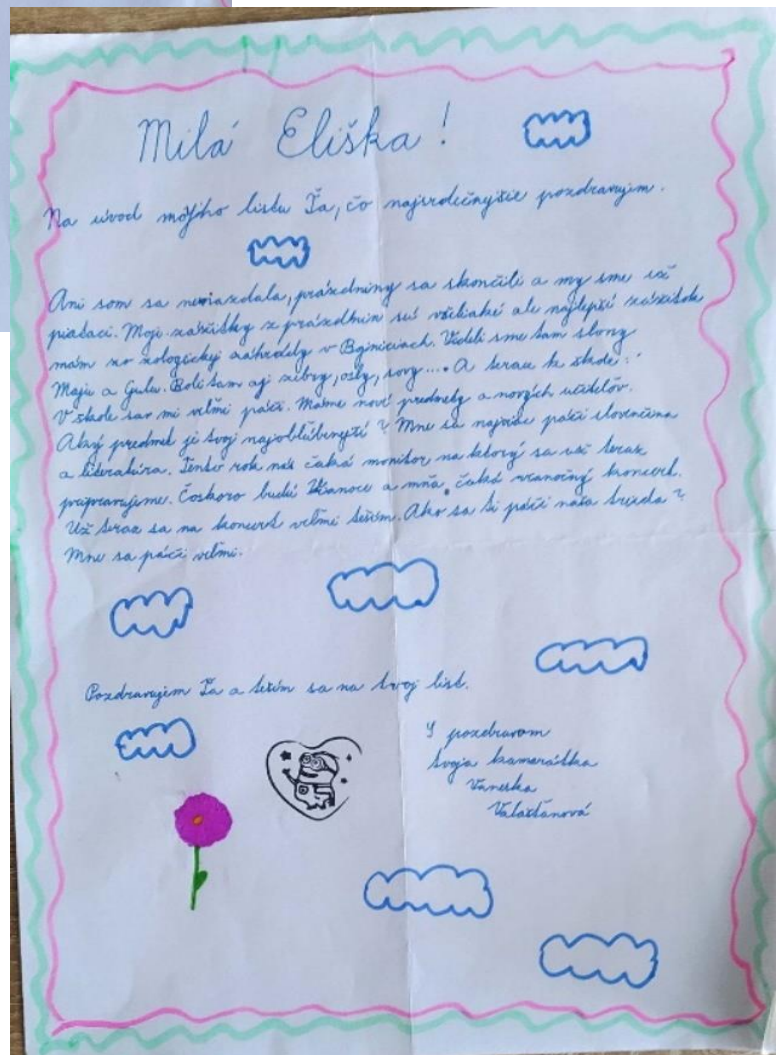 Milá Eliška!
Na úvod môjho listu Ťa, čo najsrdečnejšie pozdravujem.
Ani som sa nenazdala, prázdniny sa skončili a my sme už
piataci. Moje zážitky z prázdnin sú všeliaké ale najlepší zážitok
mám zo zologickej záhrady v Bojniciach. Videli sme tam slony
Maju a Gulu. Boli tam aj zebry, osly, sovy.... A teraz k škole:
V škole sa mi veľmi páči. Máme nové predmety a nových učiteľov.
Aký predmet je tvoj najobľúbenejší? Mne sa najviac páči slovenčina
a literatúra. Tento rok nás čaká monitor na ktorý sa už teraz
pripravujeme. Čoskoro budú Vianoce a mňa čaká vianočný koncert.
Už teraz sa na koncert veľmi teším. Ako sa ti páči naša trieda?
Mne sa páči veľmi.
Pozdravujem Ťa a teším sa na tvoj list.
S pozdravom
tvoja kamarátka
Vaneska